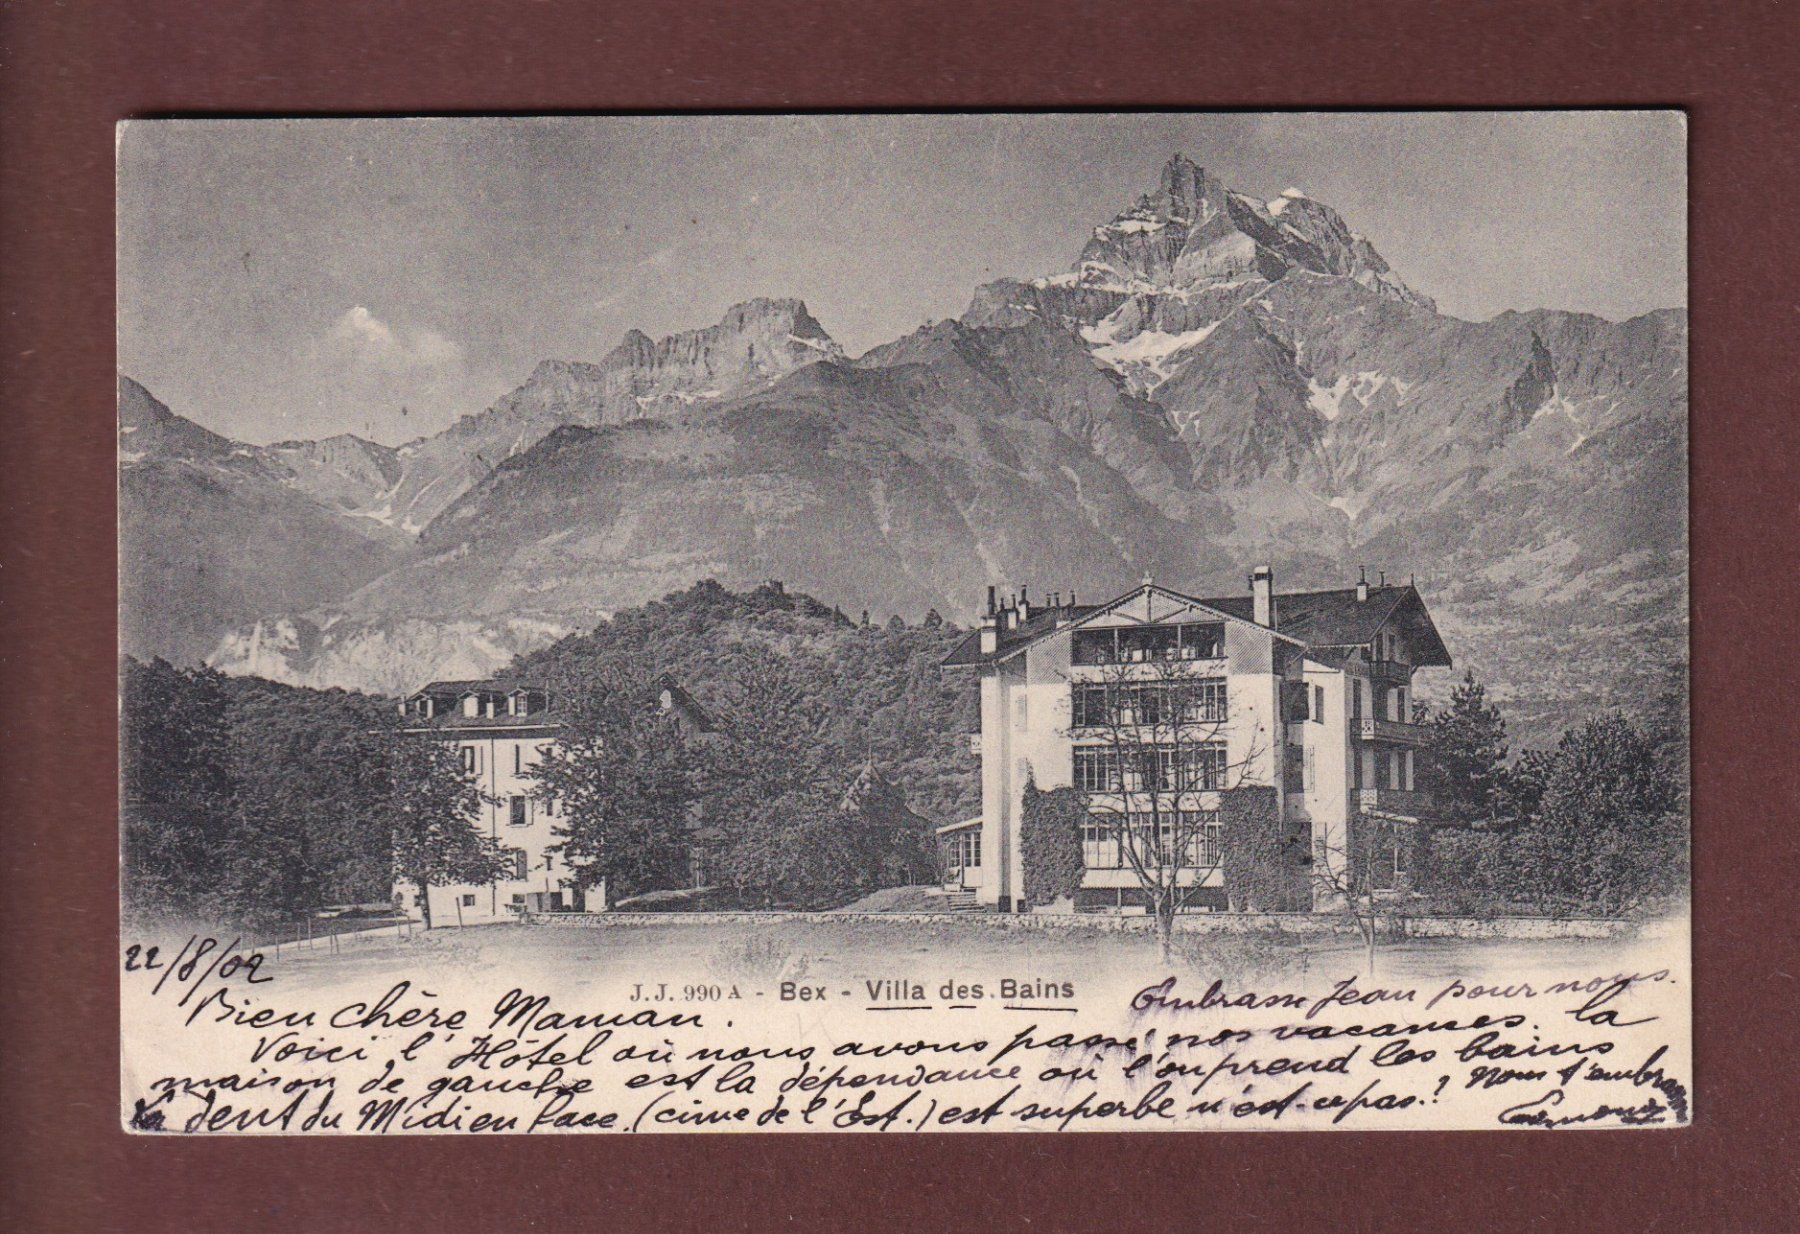 22/8/02
J.J. 990 A - Bex - Villa des Bains
Embrasse Jean pour nous.
Bien chère Maman.
Voici l'Hôtel où nous avons passé nos vacances. la
maison de gauche est la dépendance où l'on prend les bains
La dent du Midi en face. (cime de l'Est.) est superbe n'est-ce pas.!
Nous t'embrassons